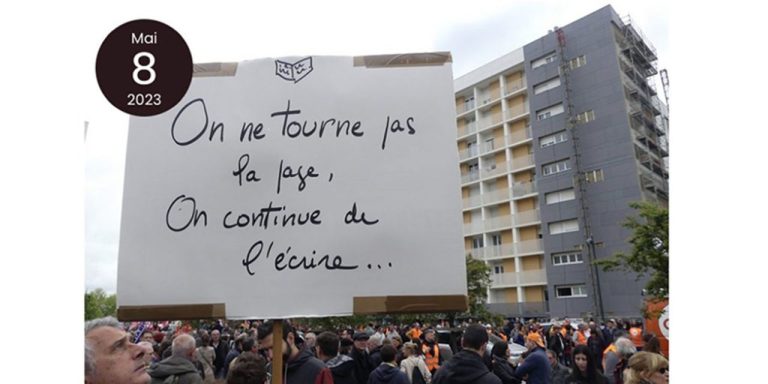 Mai
8
2023
On ne tourne pas
la page,
On continue de
l'écrire...